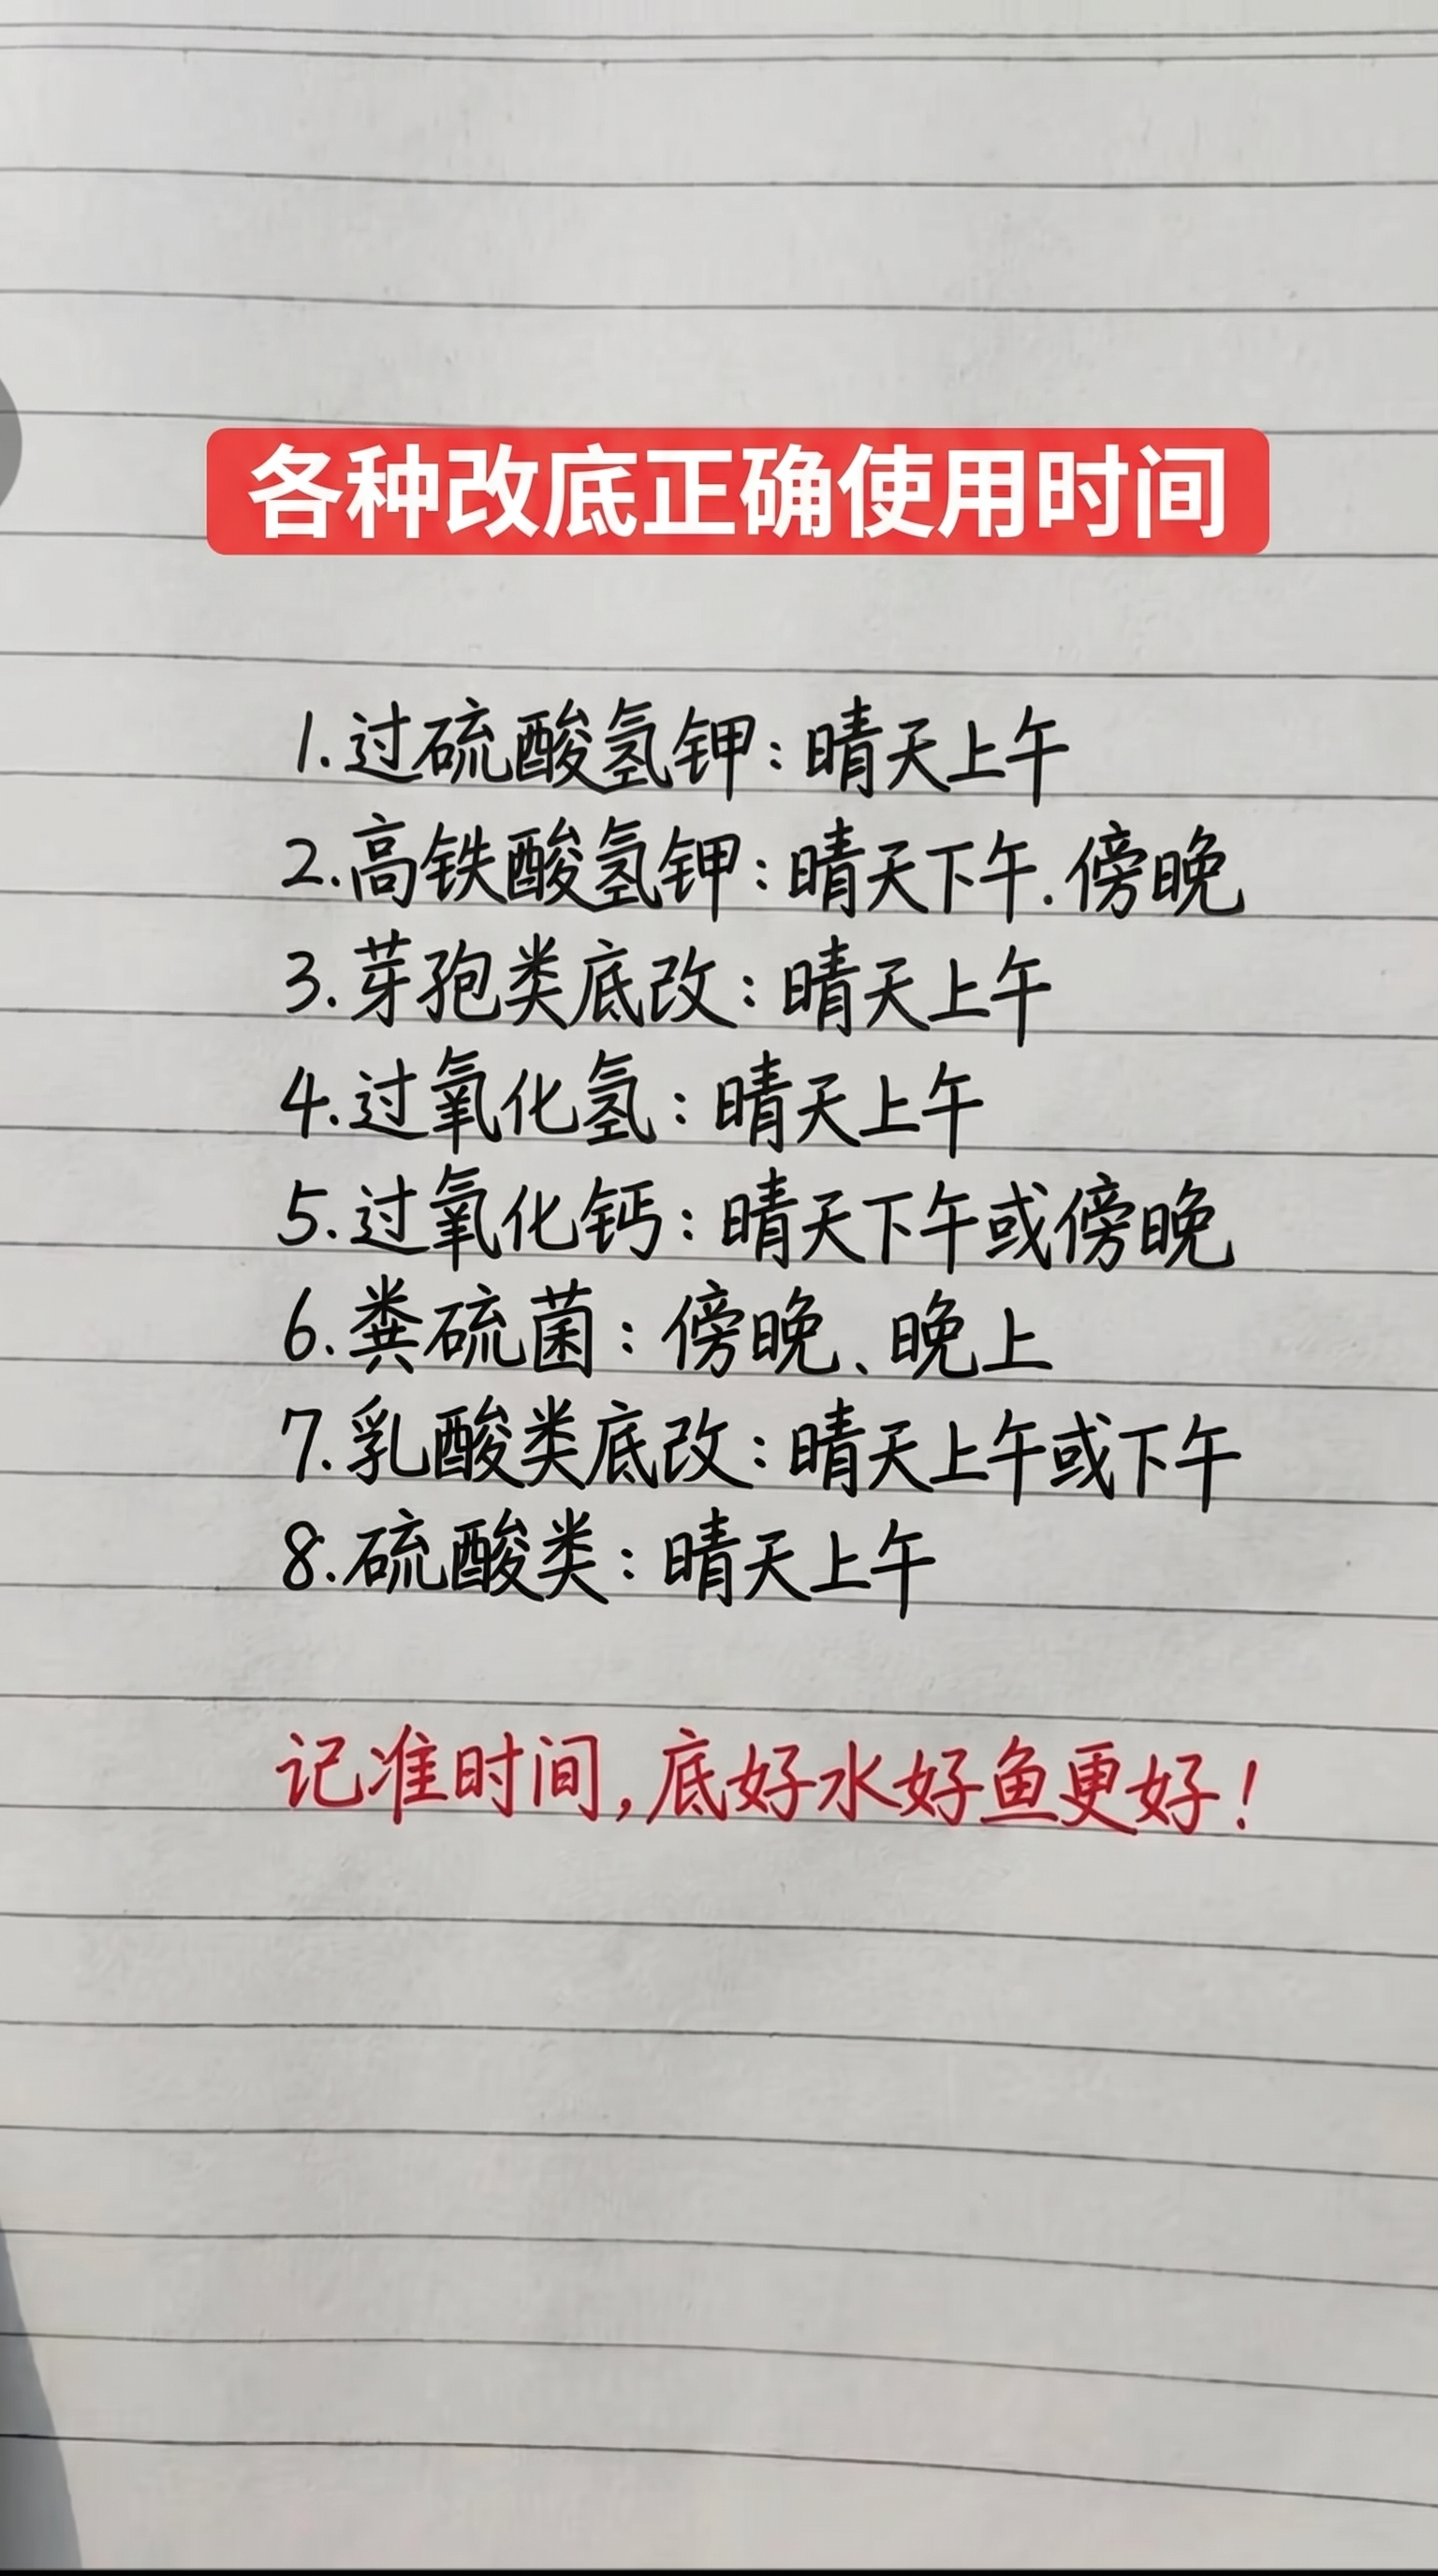 各种改底正确使用时间
1.过硫酸氢钾:晴天上午
2.高铁酸氢钾:晴天下午.傍晚
3.芽孢类底改:晴天上午
4.过氧化氢:晴天上午
5.过氧化钙:晴天下午或傍晚
6.粪硫菌:傍晚、晚上
7.乳酸类底改:晴天上午或下午
8.硫酸类:晴天上午
记准时间,底好水好鱼更好!